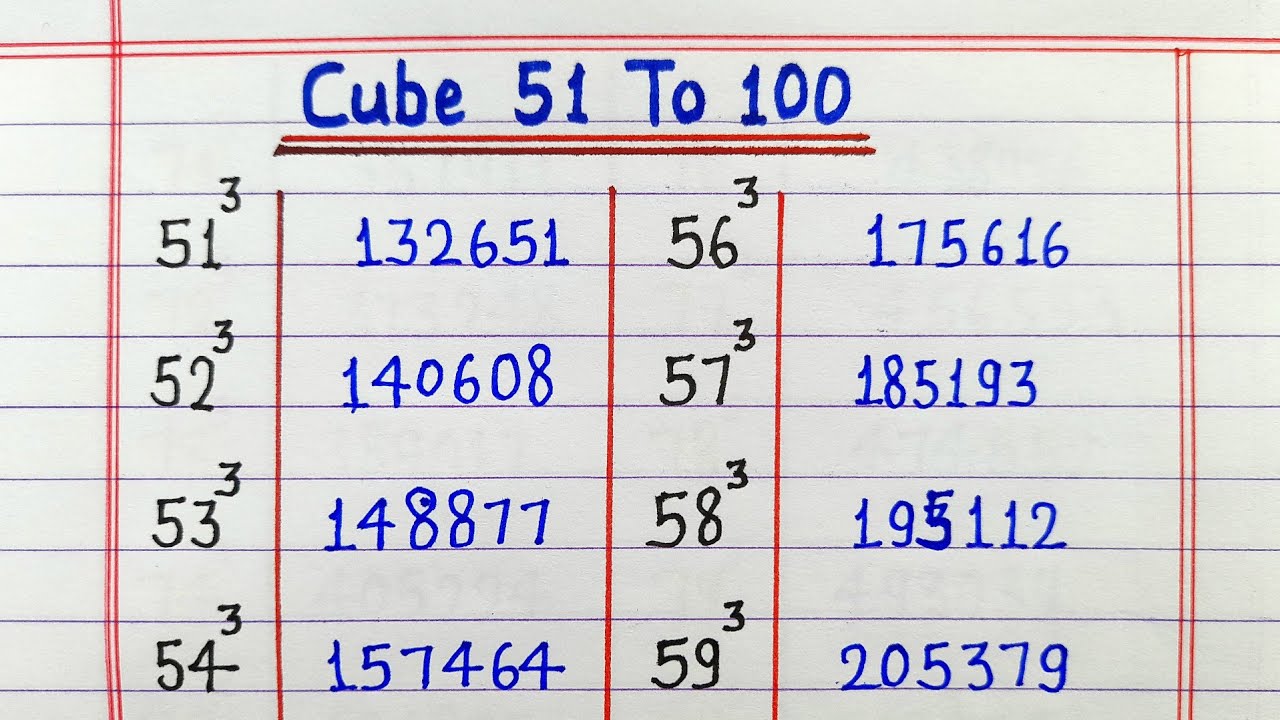 Cube 51 To 100
51³ 132651 56³ 175616
52³ 140608 57³ 185193
53³ 148877 58³ 195112
54³ 157464 59³ 205379